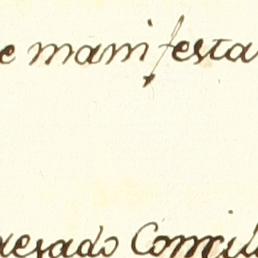 e manifesta
resado Concil